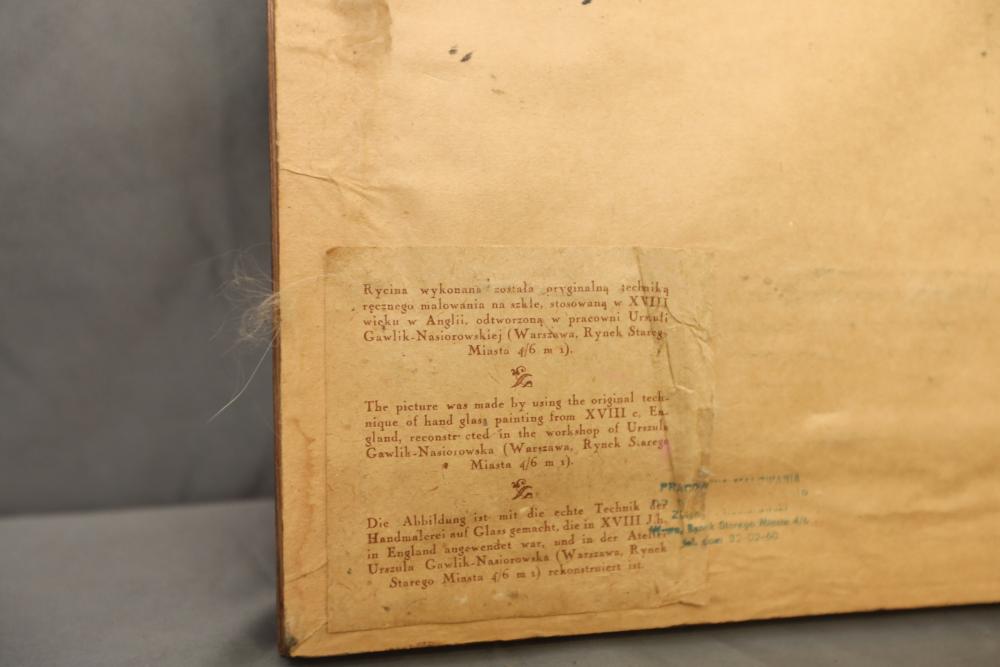 Rycina wykonana została oryginalną techniką
ręcznego malowania na szkle, stosowaną w XVIII
wieku w Anglii, odtworzoną w pracowni Urszuli
Gawlik-Nasiorowskiej (Warszawa, Rynek Starego
Miasta 4/6 m 1).
The picture was made by using the original tech-
nique of hand glass painting from XVIII c. En-
gland, reconstr cted in the workshop of Urszula
Gawlik-Nasiorowska (Warszawa, Rynek Starego
Miasta 4/6 m 1).
Die Abbildung ist mit die echte Technik der
Handmalerei auf Glass gemacht, die in XVIII J.h.
in England angewendet war, und in der Atelier
Urszula Gawlik-Nasiorowska (Warszawa, Rynek
Starego Miasta 4/6 m 1) rekonstruiert ist.
Rynek Starego Miasta 4/6